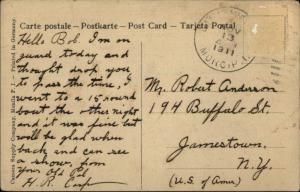 Carte postale - Postkarte - Post Card - Tarjeta Postal
Hello Bob. I'm on
guard today and
thought drop you
to pass the time, I
went to a 15 round
bout the other night
and it was fine but
will be glad when
back and can see
a show, from
Your Old Pal
H. R. Corp
1911
Mr. Robert Anderson
194 Buffalo St.
Jamestown.
N.Y.
(U.S. of Amer)
Supply Company, Manila P. I. - Printed in Germany.